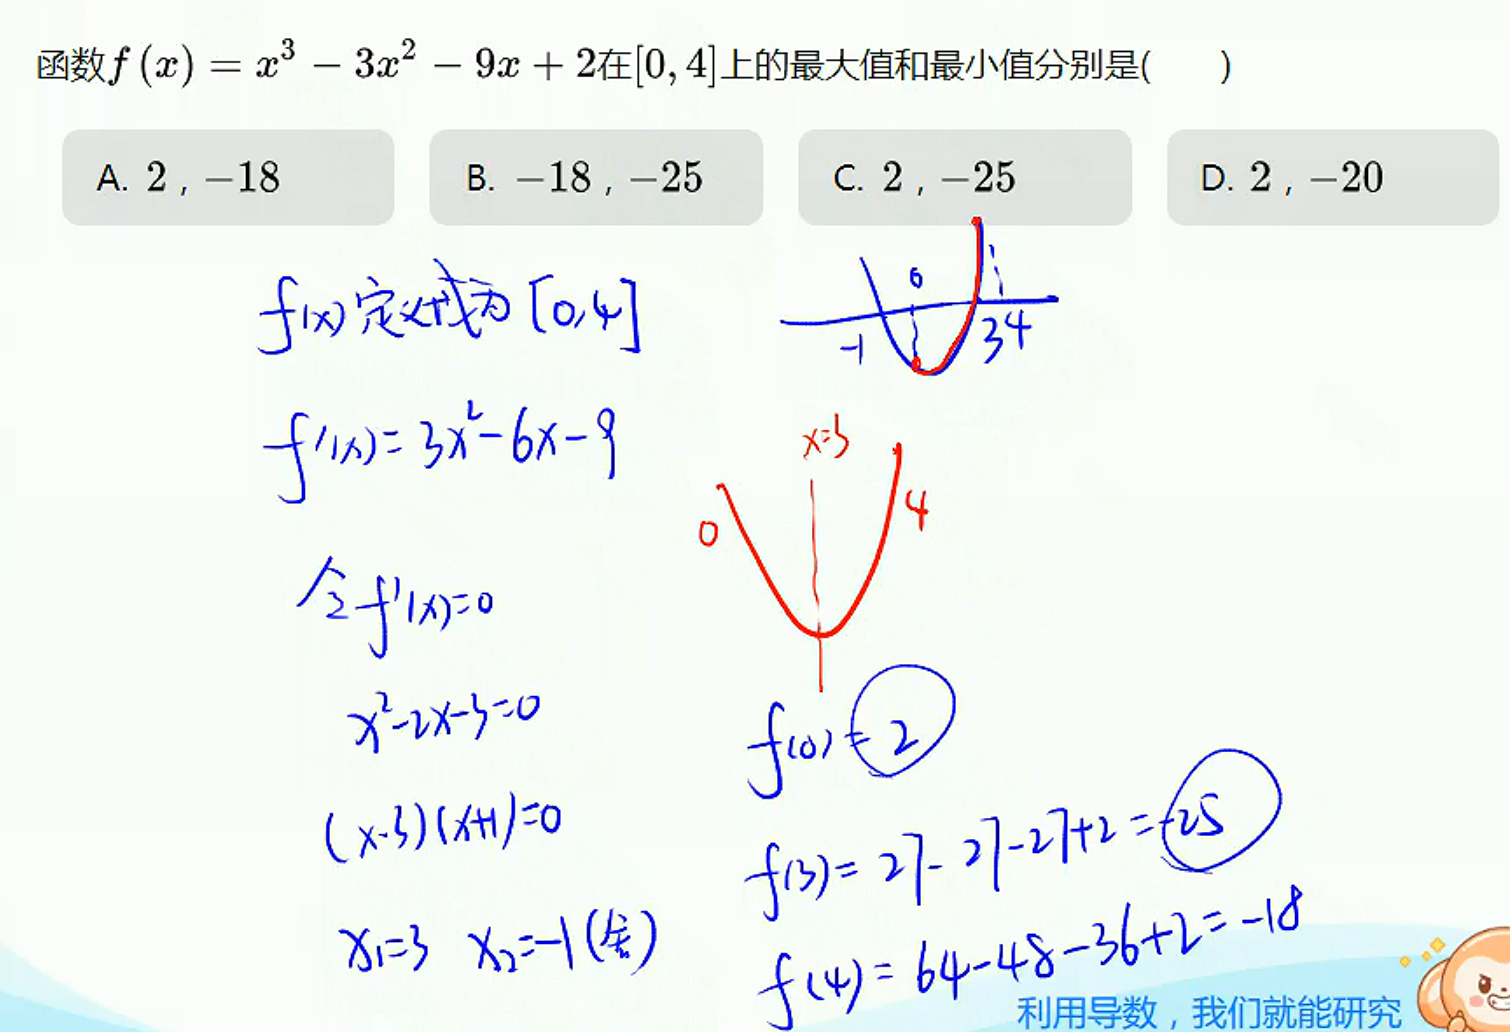 函数f(x)=x³−3x²−9x+2在[0,4]上的最大值和最小值分别是(  )
A. 2，−18
B. −18，−25
C. 2，−25
D. 2，−20
f(x)定义域为[0,4]
0
-1
3 4
f'(x)=3x²-6x-9
x=3
0
4
令f'(x)=0
x²-2x-3=0
(x-3)(x+1)=0
x₁=3 x₂=-1(舍)
f(0)=2
f(3)=27-27-27+2=-25
f(4)=64-48-36+2=-18
利用导数，我们就能研究